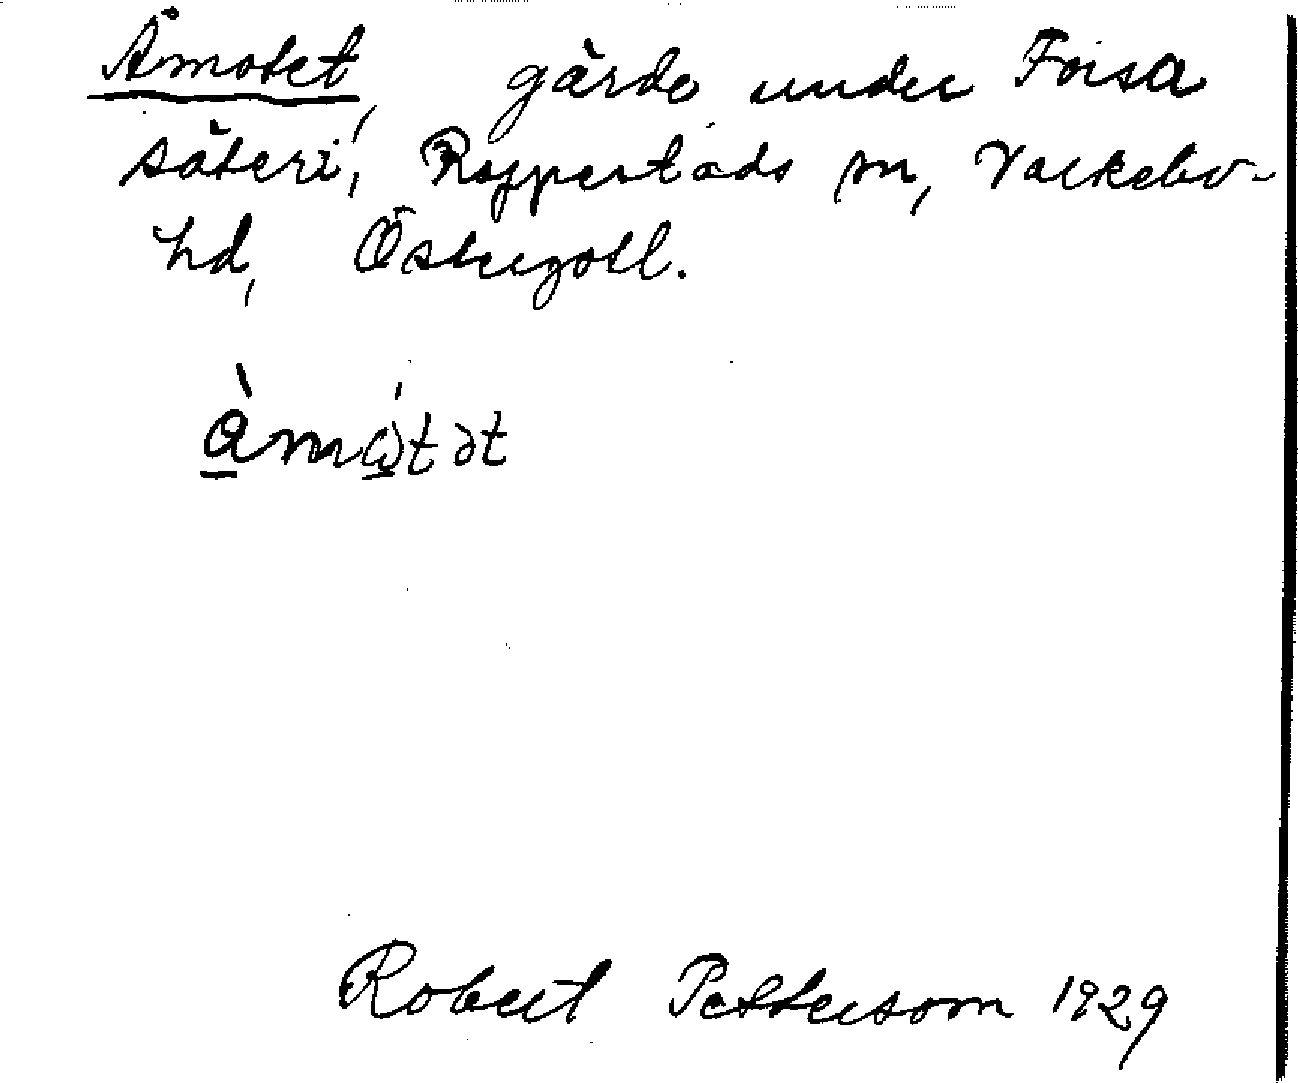 Åmotet, gärde under Forsa
säteri, Rappestads sn, Valkebo-
hd, Östergötl.
àmώ̣tət
Robert Pettersson 1929